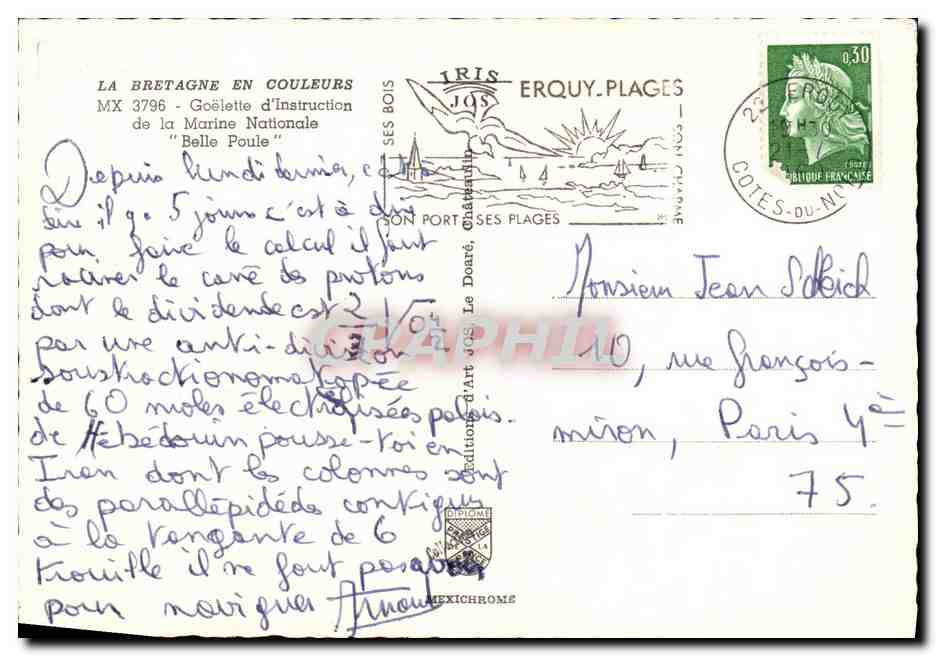 LA BRETAGNE EN COULEURS
MX 3796 - Goëlette d'Instruction
de la Marine Nationale
"Belle Poule"
IRIS
JOS
ERQUY-PLAGES
SES BOIS
SON PORT SES PLAGES
SON CHARME
22 ERQUY
COTES-DU-NORD
0,30
RÉPUBLIQUE FRANÇAISE
Depuis lundi dernier, c'est à
dire il y a 5 jours c'est à dire
pour faire le calcul il faut
raciner le carré des protons
dont le dividende est
par une anti-division
soustractionomatopée
de 60 moles électrolisées palais-
de Hébédouin pousse-toi en
Iran dont les colonnes sont
des parallépidéde contigus
à la tangante de 6
trouille il ne faut pas avoir
pour naviguer Arnaud
Editions d'Art JOS Le Doaré, Châteaulin
DIPLOME
PRESTIGE
DE LA
FRANCE
MEXICHROME
Monsieur Jean Schleich
10, rue françois-
miron, Paris 4è
75.
CRAPHIL